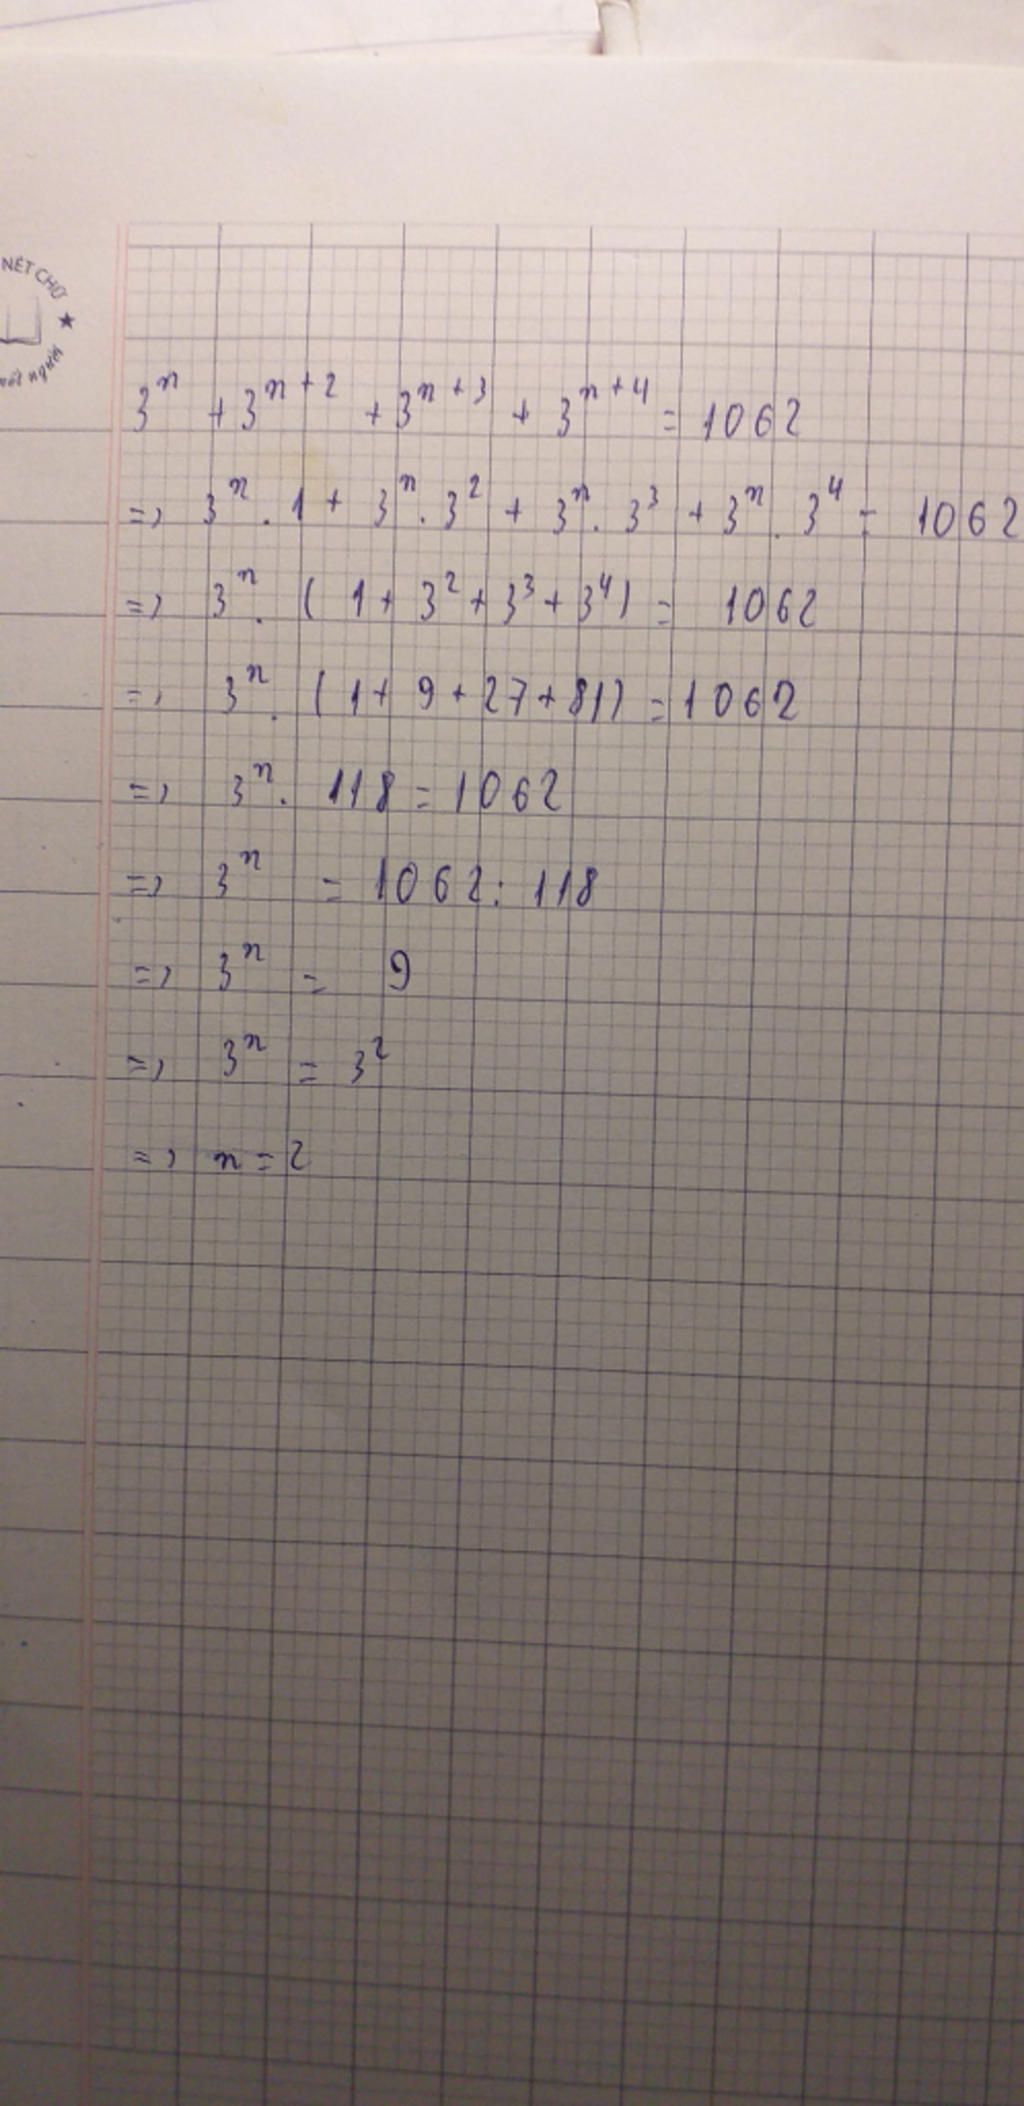 NÉT CHỮ
nết người
3ⁿ + 3ⁿ⁺² + 3ⁿ⁺³ + 3ⁿ⁺⁴ = 1062
=> 3ⁿ . 1 + 3ⁿ . 3² + 3ⁿ . 3³ + 3ⁿ . 3⁴ = 1062
=> 3ⁿ . ( 1 + 3² + 3³ + 3⁴ ) = 1062
=> 3ⁿ . ( 1 + 9 + 27 + 81 ) = 1062
=> 3ⁿ . 118 = 1062
=> 3ⁿ = 1062 : 118
=> 3ⁿ = 9
=> 3ⁿ = 3²
=> n = 2